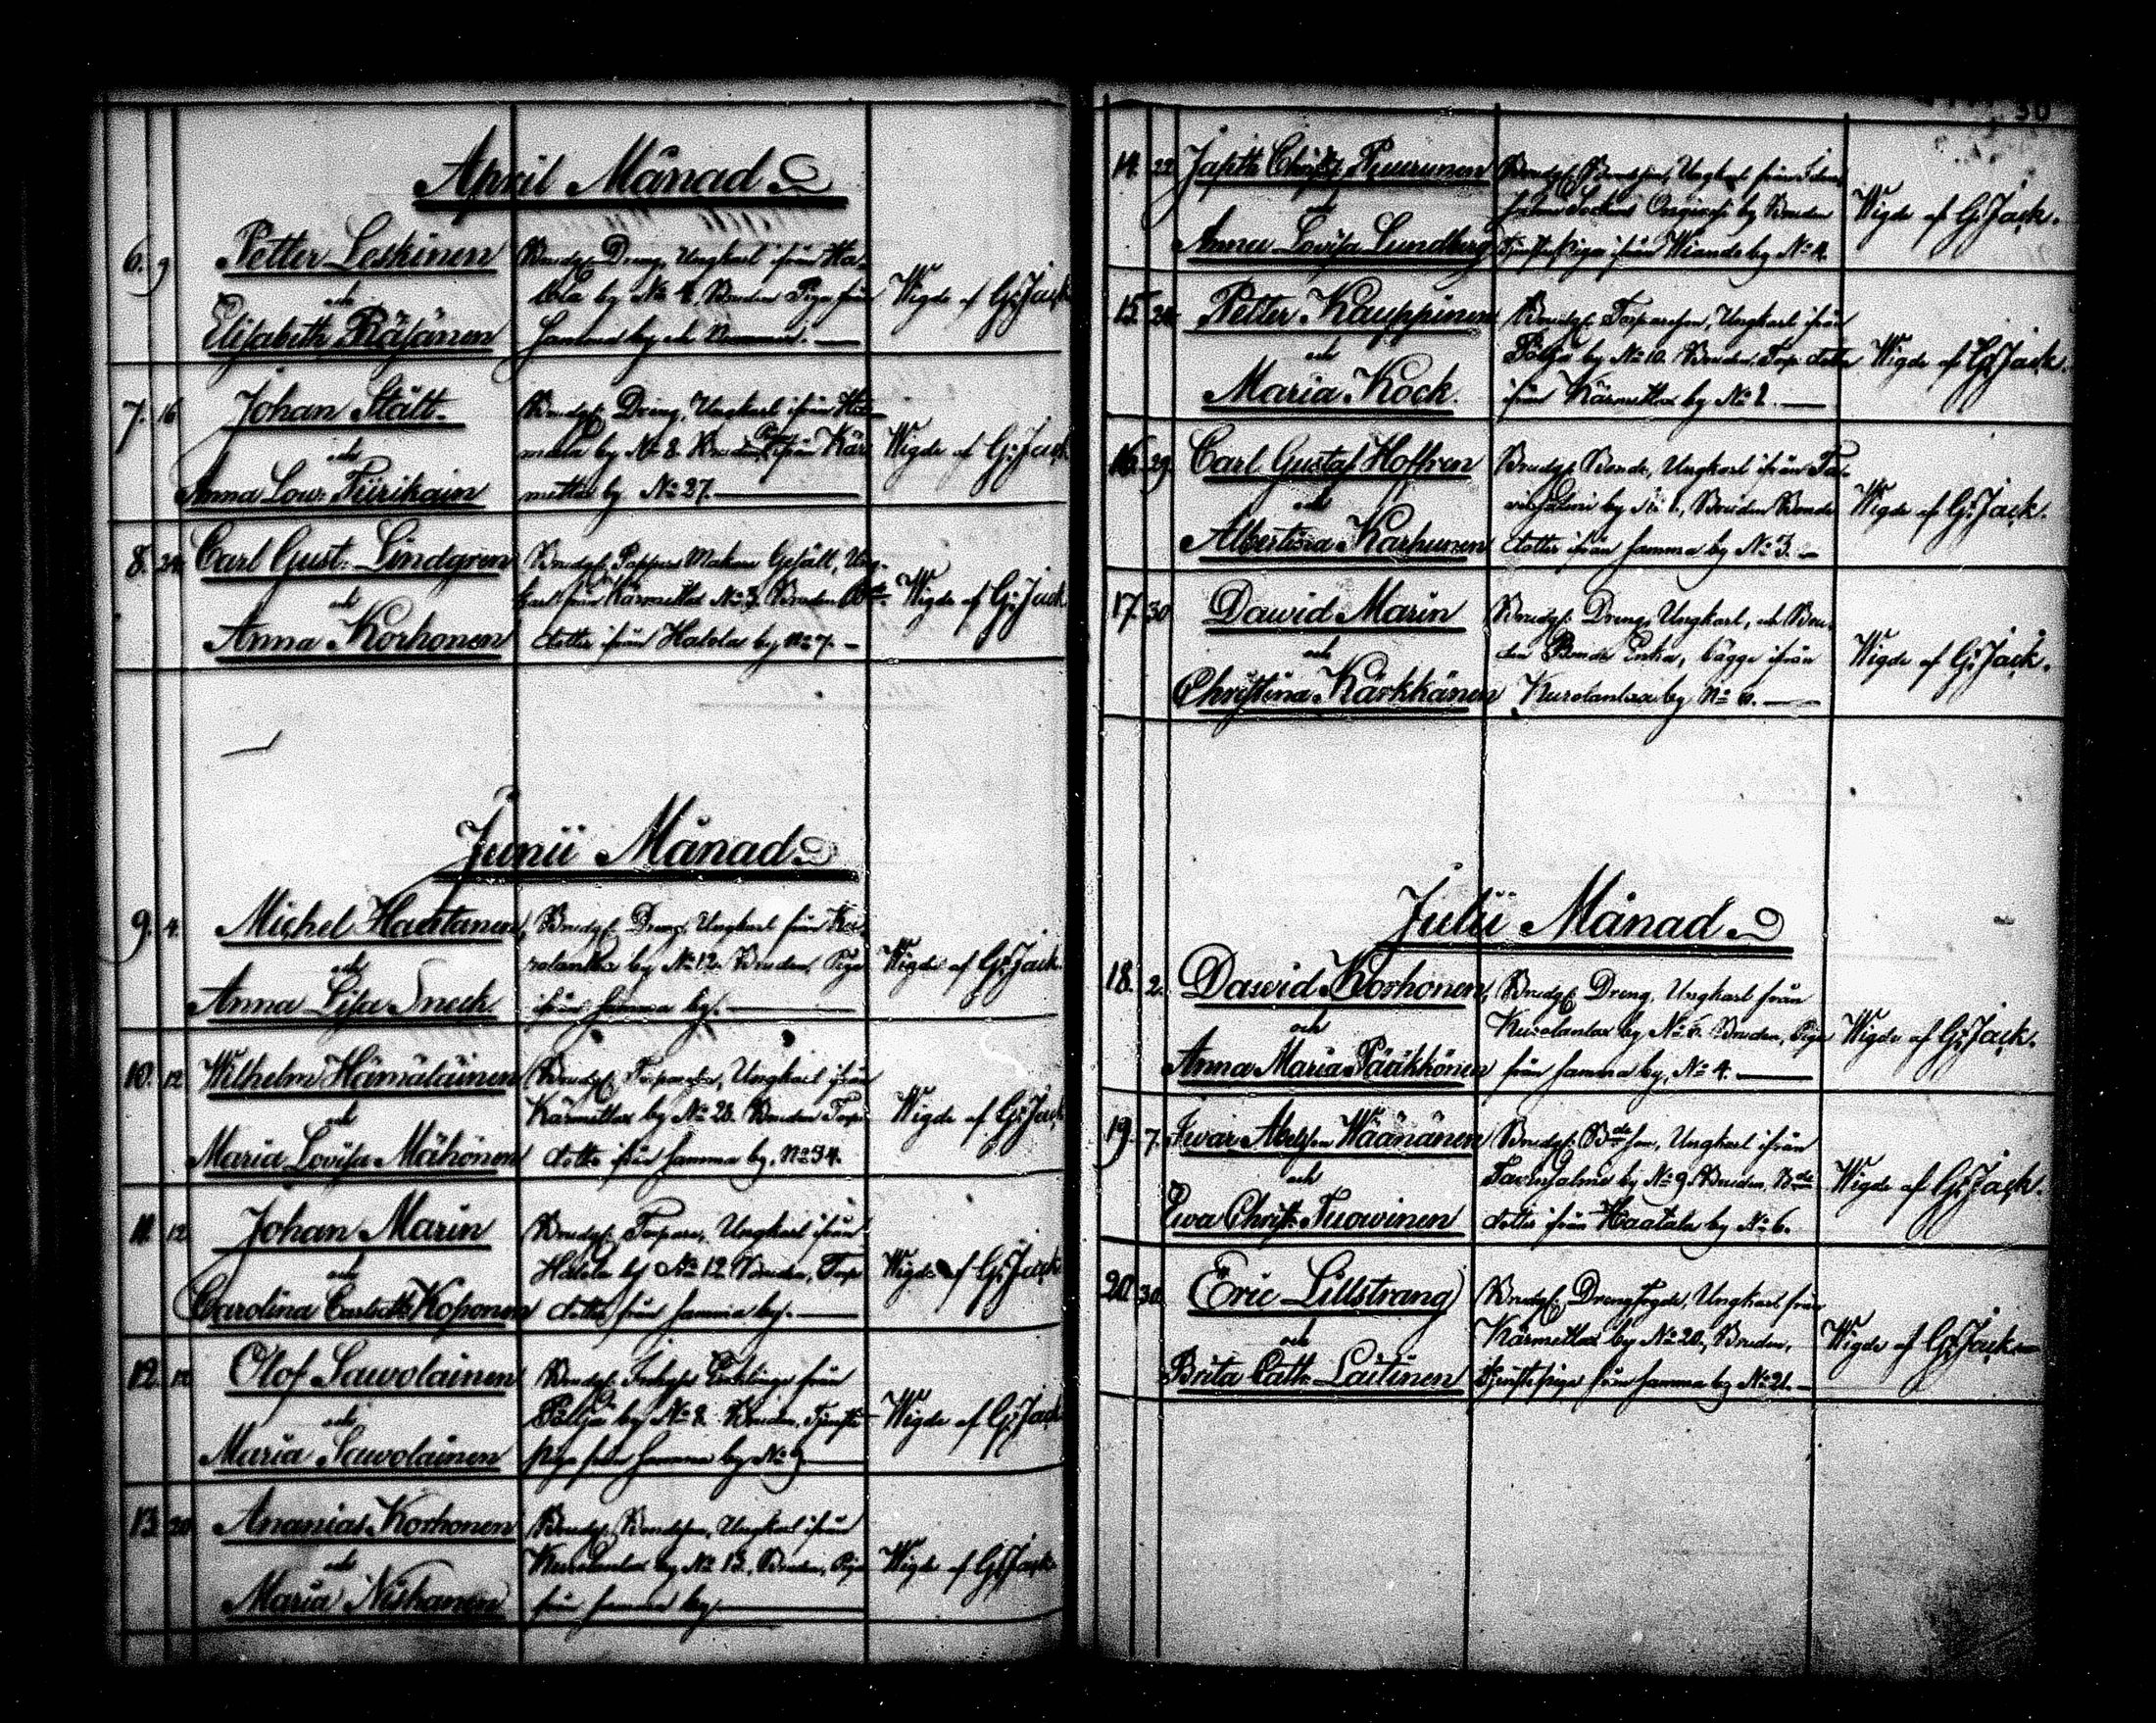 April Månad
6. 9 Petter Leskinen
och
Elisabeth Räsänen
Brudg: Dreng, Ungkarl ifrån Ha-
lola by No 4. Bruden Piga från
samma by och Nummer.
Wigde af G: Jack
7. 16 Johan Stält
och
Anna Lov: Tiirikain
Brudg: Dreng, Ungkarl ifrån
by No 8. Bruden Piga ifrån Kär
mettlax by No 27.
Wigde af G: Jack
8. 24 Carl Gust: Lindgren
och
Anna Korhonen
Brudg: Pappers Makare Gesäll, Ung-
karl från Kärmetlax No 3. Bruden Bde
dotter ifrån Halola by No 7.
Wigde af G: Jack
Junii Månad
9. 4. Michel Hautanen
och
Anna Lisa Sneck
Brudg: Dreng, Ungkarl från Ku-
rolanlax by No 12. Bruden, Piga
ifrån samma by.
Wigde af G: Jack
10. 12 Wilhelm Hämäläinen
och
Maria Lovisa Mähönen
Brudg: Torpareson, Ungkarl ifrån
Kärmetlax by No 28. Bruden Torp:
dotter ifrån samma by. No 34.
Wigde af G: Jack
11. 12 Johan Marin
och
Carolina Carlsdr Koponen
Brudg: Torpare, Ungkarl ifrån
Halola by No 12 Bruden, Torp
dotter från samma by.
Wigde af G: Jack
12. 12 Olof Sawolainen
och
Maria Sawolainen
Brudg: från
by No 8. Bruden, Tjenste
piga från samma by No 9
Wigde af G: Jack
13 20 Ananias Korhonen
och
Maria Niskanen
Brudg: Bondeson, Ungkarl ifrån
Kurolanlax by No 13, Bruden, Piga
från samma by.
Wigde af G: Jack
30
14. 22 Japeth Christ: Puurunen
och
Anna Lovisa Lundberg
Brudg: Bondeson, Ungkarl från Iden-
salmi Sockens by Bruden
Tjenstepiga ifrån Wiande by No 4.
Wigde af G: Jack.
15. 24 Petter Kauppinen
och
Maria Kock.
Brudg: Torpareson, Ungkarl ifrån
Pöljä by No 10. Bruden, Torp. dotter
ifrån Kärmetlax by No 2.
Wigde af G: Jack.
16. 29. Carl Gustaf Hoffren
och
Albertina Karhunen
Brudg: Bonde, Ungkarl ifrån Ta-
vinsalmi by No 1., Bruden Bonde
dotter ifrån samma by No 3.
Wigde af G: Jack.
17. 30 Dawid Marin
och
Christina Kärkkänen
Brudg: Dreng, Ungkarl, och Bru-
den Bonde Enka, bägge ifrån
Kurolanlax by No 6.
Wigde af G: Jack.
Julii Månad
18. 2. Dawid Korhonen
och
Anna Maria Pääkkönen
Brudg: Dreng, Ungkarl från
Kurolanlax by No 6. Bruden, Piga
från samma by, No 4.
Wigde af G: Jack.
19. 7. Iwar Abelsson Wäänänen
och
Ewa Christ: Tuovinen
Brudg: Bde son, Ungkarl ifrån
Tavinsalmi by No 9. Bruden, Bde
dotter ifrån Haatala by No 6.
Wigde af G: Jack.
20. 30 Eric Lillstrang
och
Brita Cath: Laitinen
Brudg: Drengfogde, Ungkarl från
Kärmetlax by No 20, Bruden,
Tjenstepiga från samma by No 21.
Wigde af G: Jack